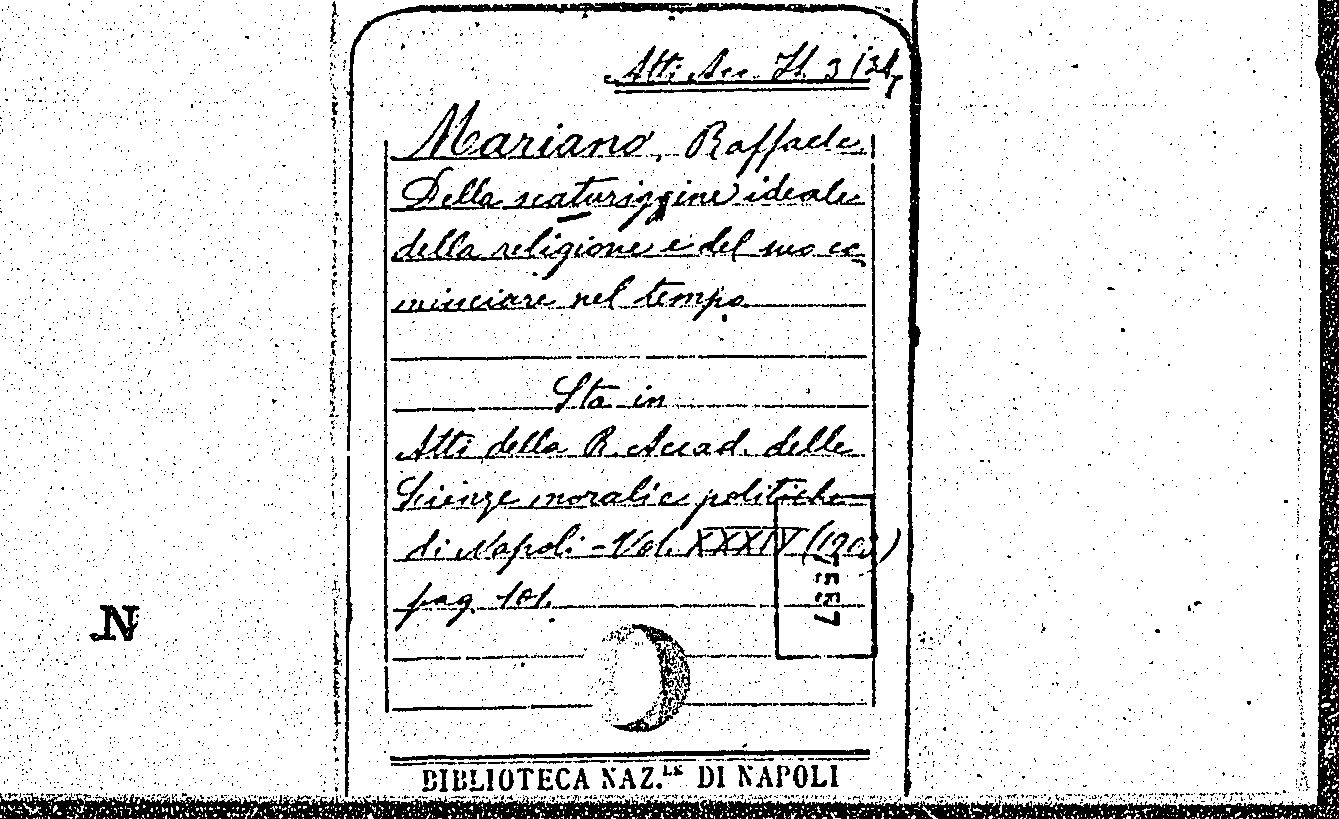 Atti Acc. It. 3/34
Mariano, Raffaele
Della scaturiggine ideale
della religione e del suo co
minciare nel tempo
Sta in
Atti della R. Accad. delle
Scienze morali e politiche
di Napoli - Vol. XXXIV (1903)
pag. 101.
N
BIBLIOTECA NAZ.LE DI NAPOLI